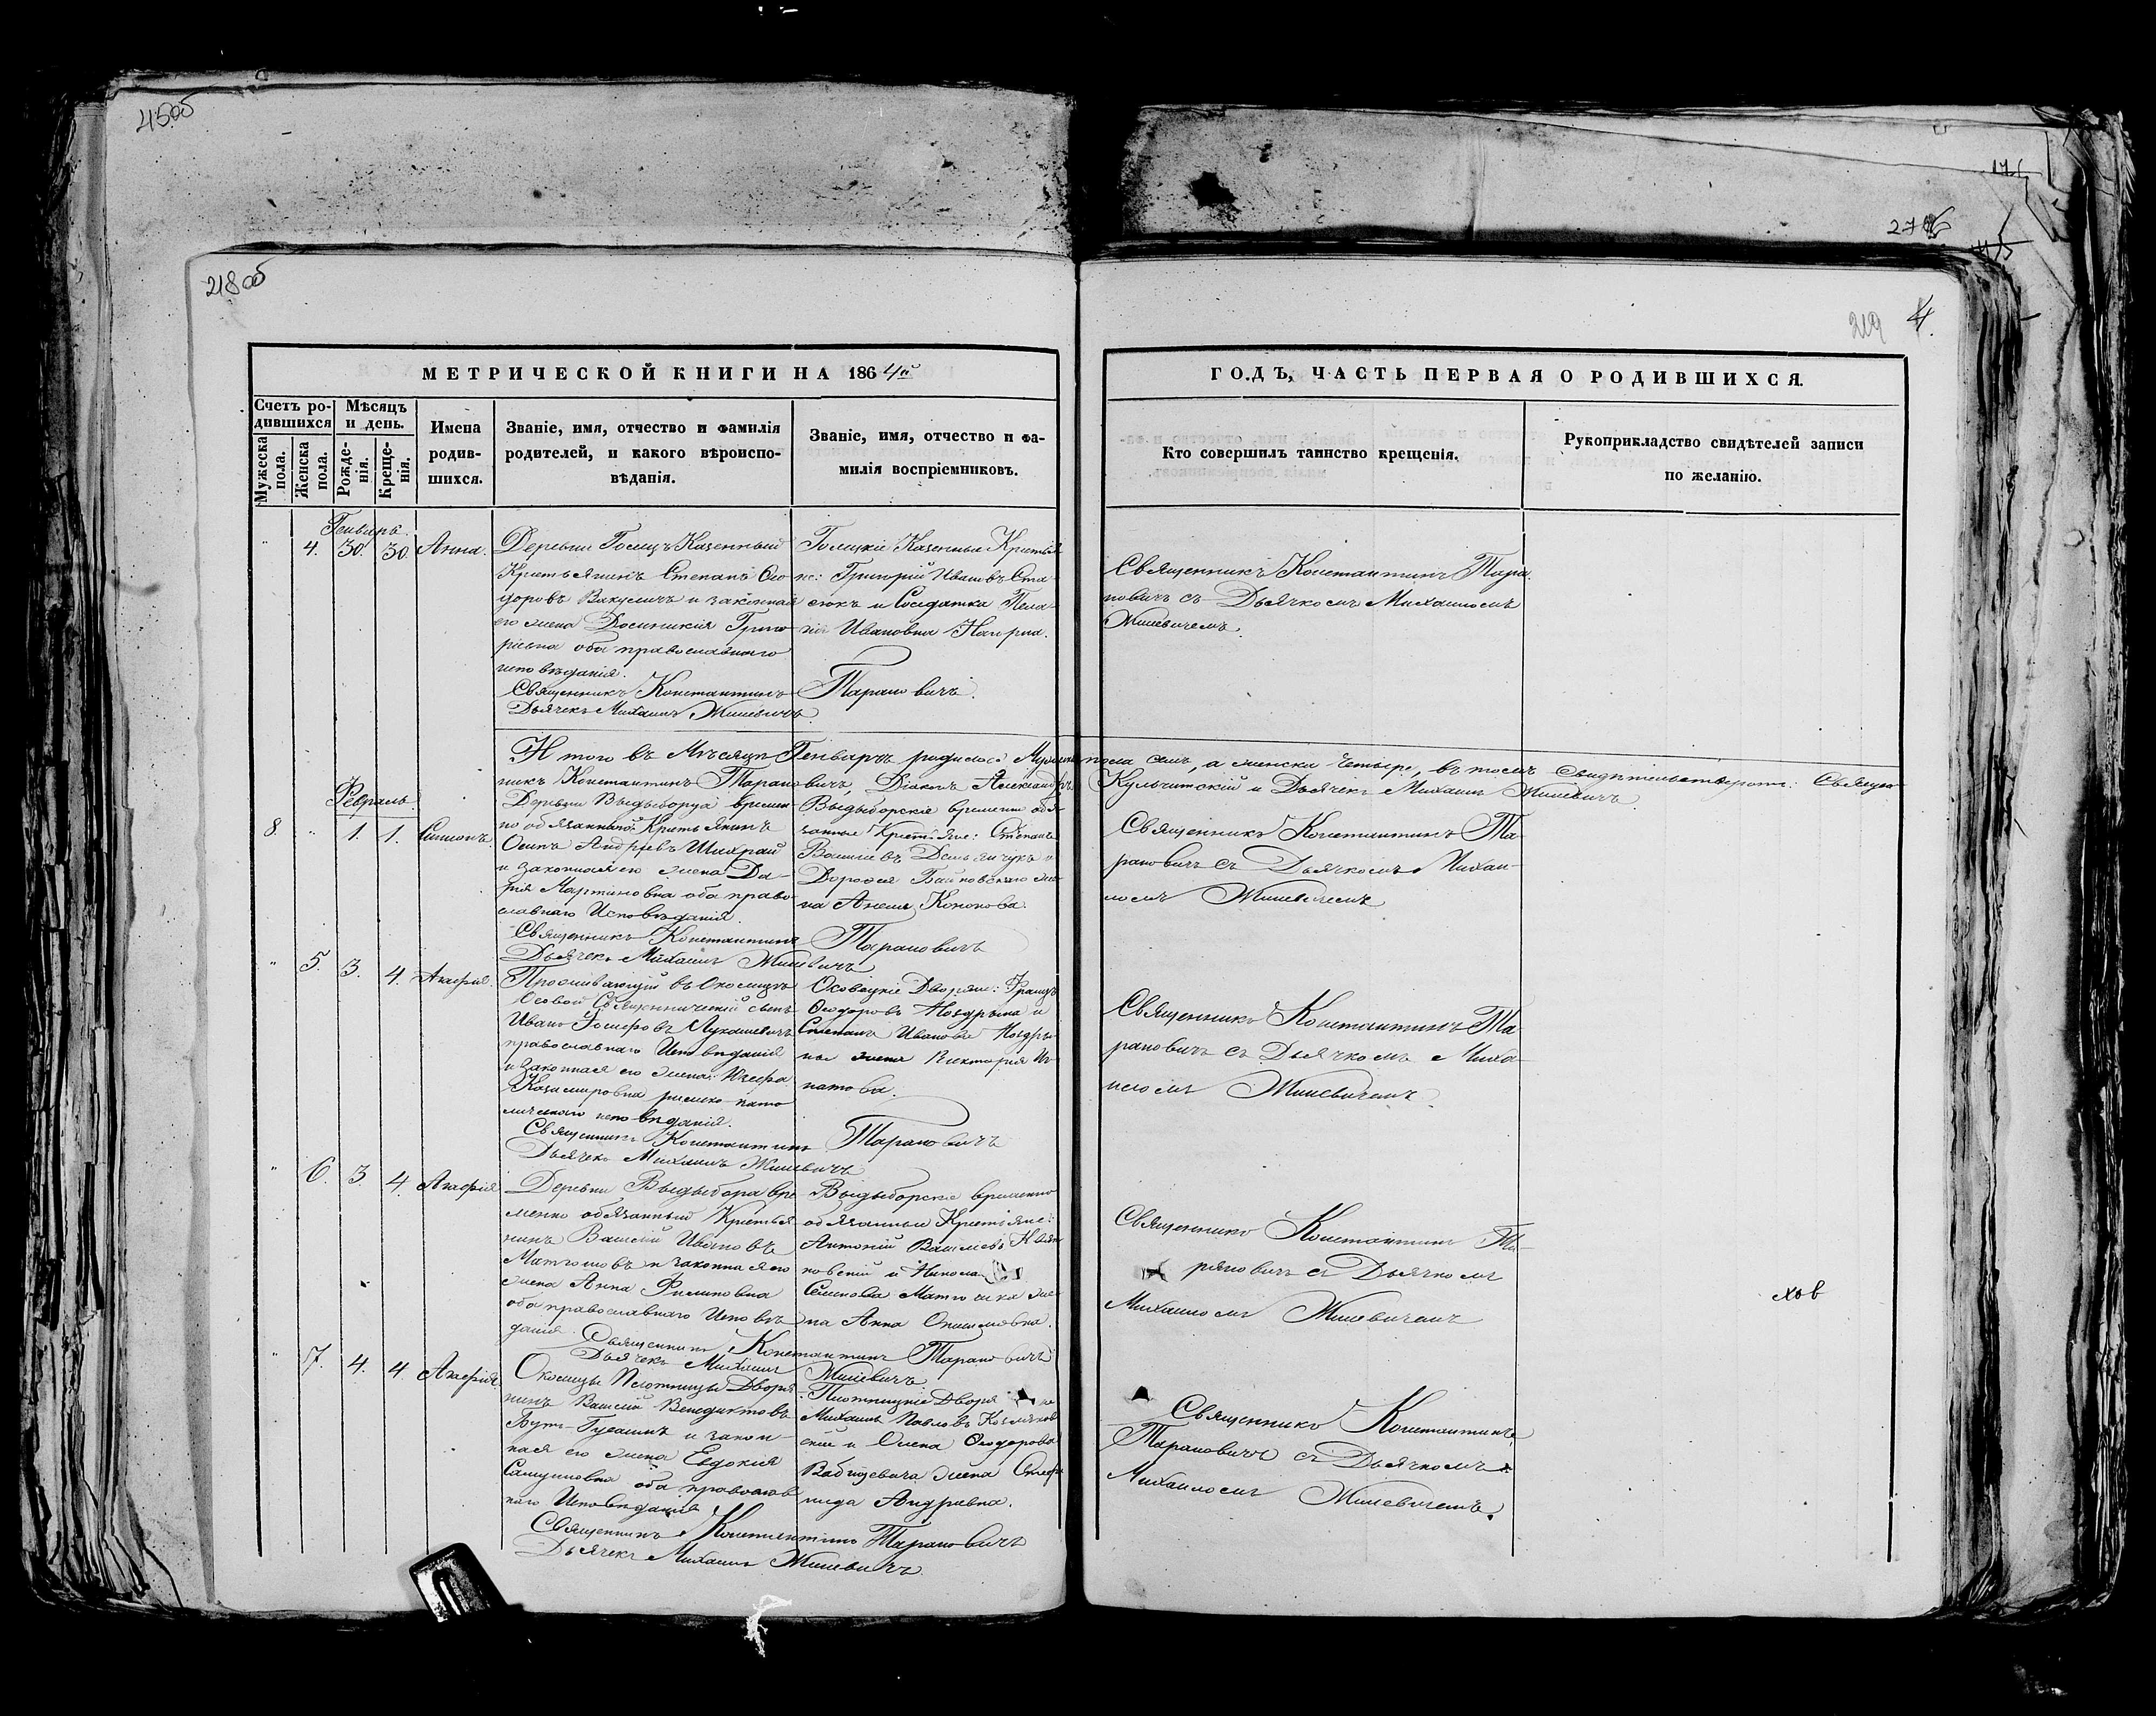 45об
218об
276
219
4.
МЕТРИЧЕСКОЙ КНИГИ НА 1864й
ГОДЪ, ЧАСТЬ ПЕРВАЯ О РОДИВШИХСЯ.
Счетъ родившихся
Мужеска пола.
Женска пола.
Мѣсяцъ и день.
Рожденія.
Крещенія.
Имена родившихся.
Званіе, имя, отчество и фамилія родителей, и какого вѣроисповѣданія.
Званіе, имя, отчество и фамилія воспріемниковъ.
Кто совершилъ таинство крещенія.
Рукоприкладство свидѣтелей записи по желанію.
Генварь
" 4. 30. 30 Анна.
Деревни Казенный
Крестьянинъ Степанъ Ѳео-
доровъ Вакуличъ и законная
его жена Домникія Григо-
ріевна оба православнаго
исповѣданія.
Священникъ Константинъ Тарановичъ.
Дьячекъ Михаилъ Жилевичъ
Казенные Крестья-
не: Григорій Ивановъ Ста-
сюкъ и Солдатка Пела-
гія Ивановна
Священникъ Константинъ Тара-
новичъ съ Дьячкомъ Михаиломъ
Жилевичемъ.
Итого въ Мѣсяцѣ Генварѣ родилось Мужеска пола семь, а женска четыре, въ томъ свидѣтельствуютъ: Священ-
никъ Константинъ Тарановичъ, Діаконъ Александръ Кульчитскій и Дьячекъ Михаилъ Жилевичъ.
Февраль
8. " 1. 1. Симеонъ.
Деревни Выдыборуа времен-
но обязанный Крестьянинъ
Осипъ Андреевъ Шахрай
и законная его жена Да-
рія Мартиновна оба право-
славнаго Исповѣданія.
Священникъ Константинъ Тарановичъ
Дьячекъ Михаилъ Жилевичъ
Выдыборскіе временно обя-
занные Крестьяне: Степанъ
Васильевъ Демьянчукъ и
Дорофея жe-
на Кононова.
Священникъ Константинъ Та-
рановичъ съ Дьячкомъ Михаи-
ломъ Жилевичемъ
" 5. 3. 4. Агафія.
Проживающій въ Околицѣ
Осовой Священническій сынъ
Иванъ Іосифовъ Лукашевичъ
православнаго Исповѣданія
и законная его жена Іозефа
Казимировна римско-като-
лическаго исповѣданія.
Священникъ Константинъ Тарановичъ
Дьячекъ Михаилъ Жилевичъ
Осовецкіе Дворяне: Францъ
Ѳеодоровъ Ноздрына и
Степана Иванова Ноздры-
ны жена Викторія Иг-
натова.
Священникъ Константинъ Та-
рановичъ съ Дьячкомъ Миха-
иломъ Жилевичемъ.
" 6. 3. 4. Агафія
Деревни Выдыбора вре-
менно обязанный Крестья-
нинъ Василій Ивановъ
и законная его
жена Анна Филиповна
оба православнаго Исповѣ-
данія. Священникъ Константинъ Тарановичъ
Дьячекъ Михаилъ Жилевичъ
Выдыборскіе временно
обязанные Крестьяне:
Антоній Васильевъ
и Никола
Семенова жe-
на Анна
Священникъ Константинъ Та-
рановичъ съ Дьячкомъ
Михаиломъ Жилевичемъ
" 7. 4. 4. Агафія.
Околицы Плотницы Дворя-
нинъ Василій Венедиктовъ
Бутъ-Гусаимъ и закон-
ная его жена Евдокія
оба православ-
наго Исповѣданія
Священникъ Константинъ Тарановичъ
Дьячекъ Михаилъ Жилевичъ
Плотницкіе Дворяне
Михаилъ Павловъ
и Ѳеодорова
жена
Андреевна.
Священникъ Константинъ
Тарановичъ съ Дьячкомъ
Михаиломъ Жилевичемъ.